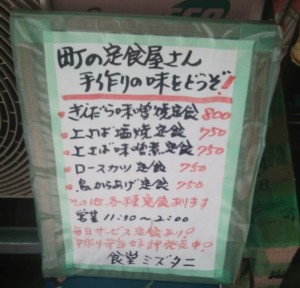 町の定食屋さん
手作りの味をどうぞ!
・ぎんだら味噌焼定食 800
・上さば塩焼定食 750
・上さば味噌煮定食 750
・ロースカツ定食 750
・鳥からあげ定食 750
その他各種定食あります
営業 11:30〜2:00
毎日サービス定食あり!
手作り弁当も好評発売中!
食堂ミズタニ